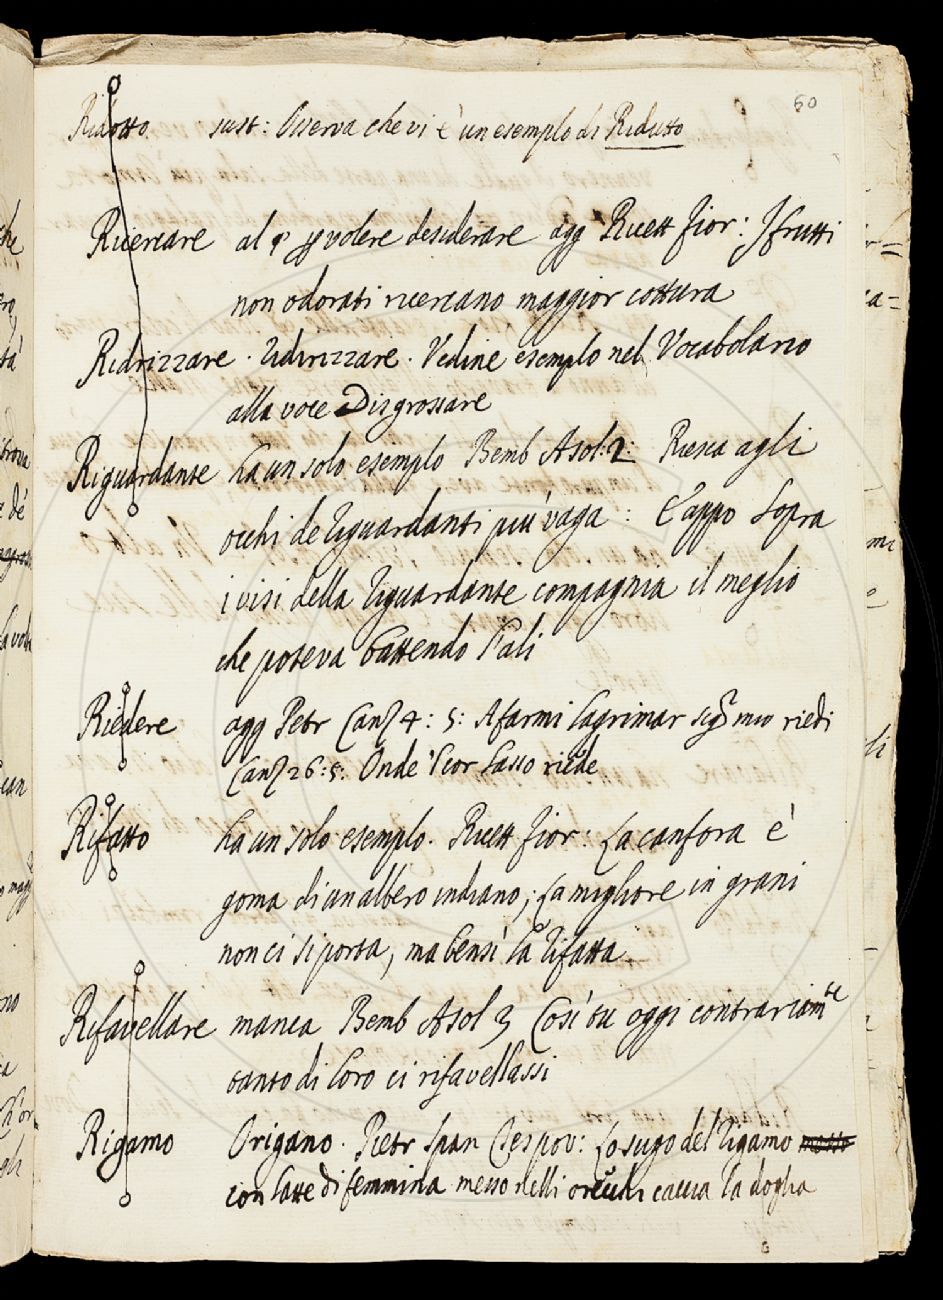 60
Ridotto sust: Osserva che vi è un esempio di Ridutto
Ricercare al § p volere desiderare agg Ricett Fior: I frutti
non odorati ricercano maggior cottura
Ridrizzare . Ridirizzare . Vedine esempio nel Vocabolario
alla voce Disgrossare
Riguardante ha un solo esempio Bemb Asol: 2: Riesca agli
occhi de riguardanti più vaga : E appo Sopra
i visi della riguardante compagnia il meglio
che poteva battendo l'ali
Riedere agg Petr Canz 4: 5: A farmi lagrimar sigr mio riedi
Canz 26:5: Onde 'l cor lasso riede
Rifatto ha un solo esempio. Ricett Fior: La canfora è
goma di un albero indiano; La migliore in grani
non ci si porta, ma bensì la rifatta
Rifavellare manca Bemb Asol 3 Così tu oggi contrariamte
tanto di loro ci rifavellassi
Rigamo Origano . Pietr Span Tespov: Lo sugo del rigamo
con latte di femmina messo nelli orecchi caccia la doglia